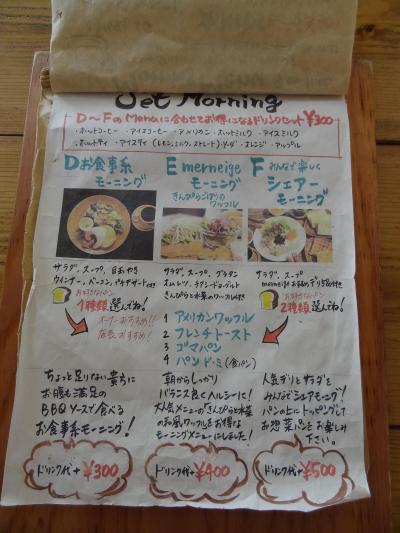 Set Morning
D〜FのMenuに合わせてお得になるドリンクセット ¥300
・ホットコーヒー ・アイスコーヒー ・アメリカン ・ホットミルク ・アイスミルク
・ホットティ ・アイスティ(レモン,ミルク,ストレート)・ソーダ ・オレンジ ・アップル
Dお食事系
モーニング
E merneige
モーニング
きんぴらごぼうの
ワッフル
F みんなで楽しく
シェアー
モーニング
サラダ、スープ、目玉やき
ウィンナー、ベーコン、プチデザート付き
お好きなパン
1種類選んでね!
オーナーおすすめ!!
店長おすすめ!
サラダ、スープ、グラタン
オムレツ、チアシードヨーグルト
きんぴらと水菜のワッフル付き
サラダ、スープ
merneigeおすすめデリ5品付き
お好きなパン
2種類選んでね!
1 アメリカンワッフル
2 フレンチトースト
3 ゴマパン
4 パンド・ミ(食パン)
ちょっと足りない貴方に
お腹も満足の
BBQソースで食べる
お食事系モーニング!
朝からしっかり
バランス良くヘルシーに!
大人気メニューのきんぴらと水菜
の和風ワッフルもお得な
モーニングメニューにしました!
人気デリとサラダを
みんなでシェアモーニング!
パンの上にトッピングして
お惣菜パンもお楽しみ
下さい。
ドリンク代+¥300
ドリンク代+¥400
ドリンク代+¥500